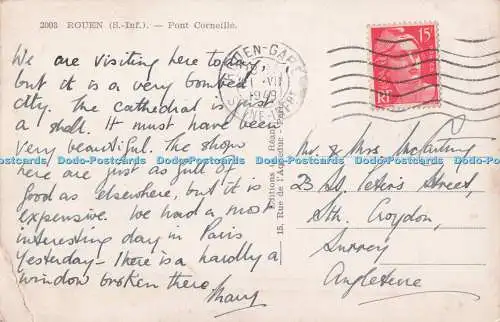 2003 ROUEN (S.-Inf.). — Pont Corneille.
We are visiting here today,
but it is a very bombed
city. The cathedral is just
a shell. It must have been
very beautiful. The shops
here are just as full of
good as elsewhere, but it is
expensive. We had a most
interesting day in Paris
yesterday - There is a hardly a
window broken there
ROUEN-GARE
1949
15F
RF
Editions
15, Rue de
Mr. & Mrs
23 St. Peter's Street,
Sth. Croydon,
Surrey
Angleterre
Docs-Postcards Docs-Postcards Docs-Postcards Docs-Postcards Docs-Postcards Docs-Postcards